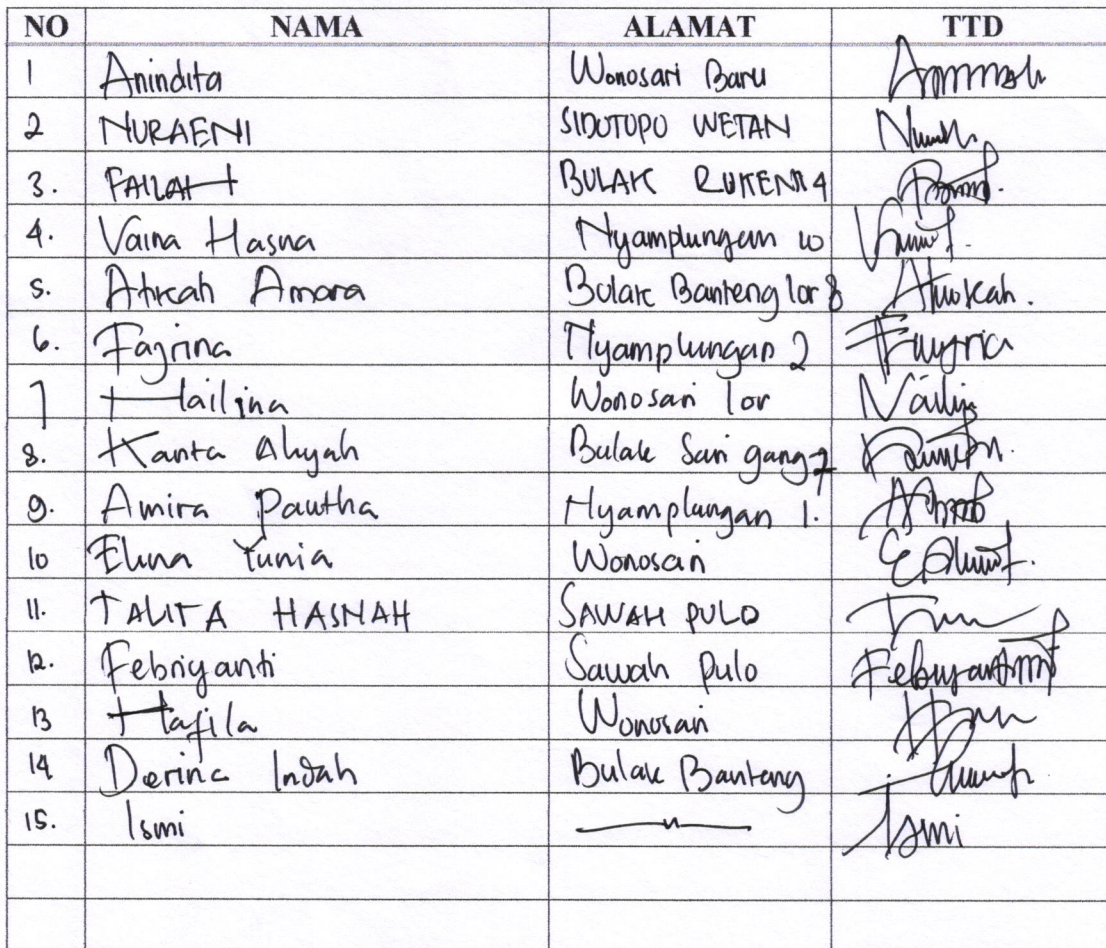 NO NAMA ALAMAT TTD
1 Anindita Wonosari Baru
2 NURAENI SIDOTOPO WETAN
3. FAILAH BULAK RUKEM 4
4. Vaina Hasna Nyamplungan 10
5. Atikah Amora Bulak Banteng lor 8
6. Fajrina Nyamplungan 2
7 Nailina Wonosari lor
8. Kanta Aliyah Bulak Sari gang 7
9. Amira Pautha Nyamplungan 1.
10 Elina Yunia Wonosari
11. TALITA HASNAH SAWAH PULO
12. Febriyanti Sawah Pulo Febriyanti
13 Hafila Wonosari
14 Derina Indah Bulak Banteng
15. Ismi —〃— Ismi